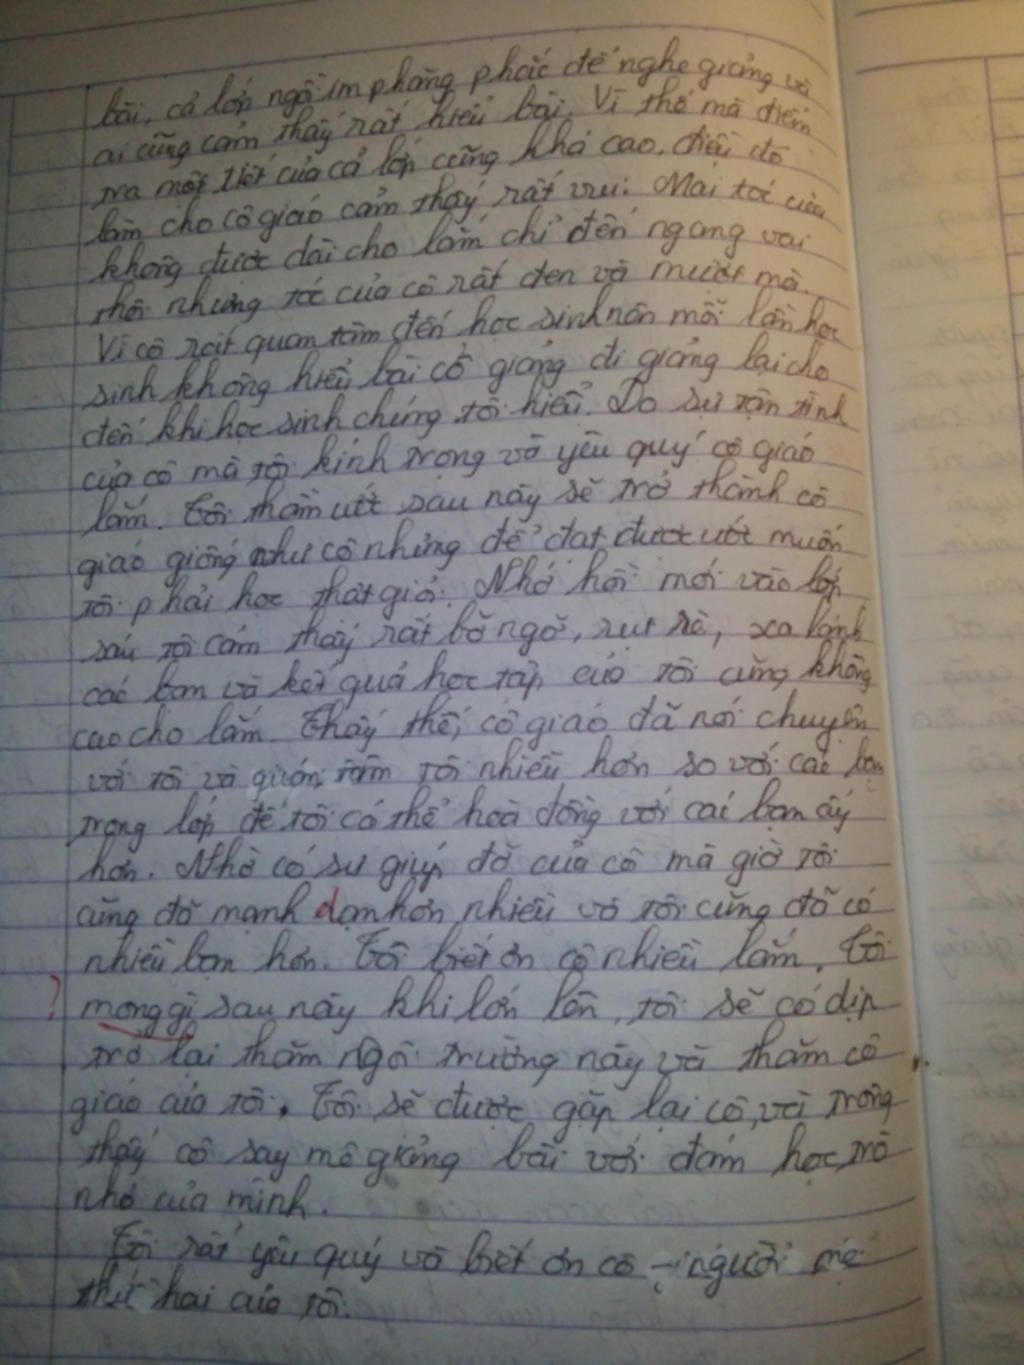 bài, cả lớp ngồi im phăng phắc để nghe giảng và
ai cũng cảm thấy rất hiểu bài. Vì thế mà điểm
ra một tiết của cả lớp cũng khá cao, điều đó
làm cho cô giáo cảm thấy rất vui. Mái tóc của
không được dài cho lắm chỉ đến ngang vai
thôi nhưng tóc của cô rất đen và mượt mà.
Vì cô rất quan tâm đến học sinh nên mỗi lần học
sinh không hiểu bài cô giảng đi giảng lại cho
đến khi học sinh chúng tôi hiểu. Do sự tận tình
của cô mà tôi kính trọng và yêu quý cô giáo
lắm. Tôi thầm ước sau này sẽ trở thành cô
giáo giống như cô nhưng để đạt được ước muốn
tôi phải học thật giỏi. Nhớ hồi mới vào lớp
sáu tôi cảm thấy rất bỡ ngỡ, rụt rè, xa lánh
các bạn và kết quả học tập của tôi cũng không
cao cho lắm. Thấy thế, cô giáo đã nói chuyện
với tôi và quan tâm tôi nhiều hơn so với các bạn
trong lớp để tôi có thể hoà đồng với các bạn ấy
hơn. Nhờ có sự giúp đỡ của cô mà giờ tôi
cũng đã mạnh dạn hơn nhiều và tôi cũng đã có
nhiều bạn hơn. Tôi biết ơn cô nhiều lắm. Tôi
? mong gì sau này khi lớn lên, tôi sẽ có dịp
trở lại thăm ngôi trường này và thăm cô
giáo của tôi. Tôi sẽ được gặp lại cô, và trông
thấy cô say mê giảng bài với đám học trò
nhỏ của mình.
Tôi rất yêu quý và biết ơn cô - người mẹ
thứ hai của tôi.